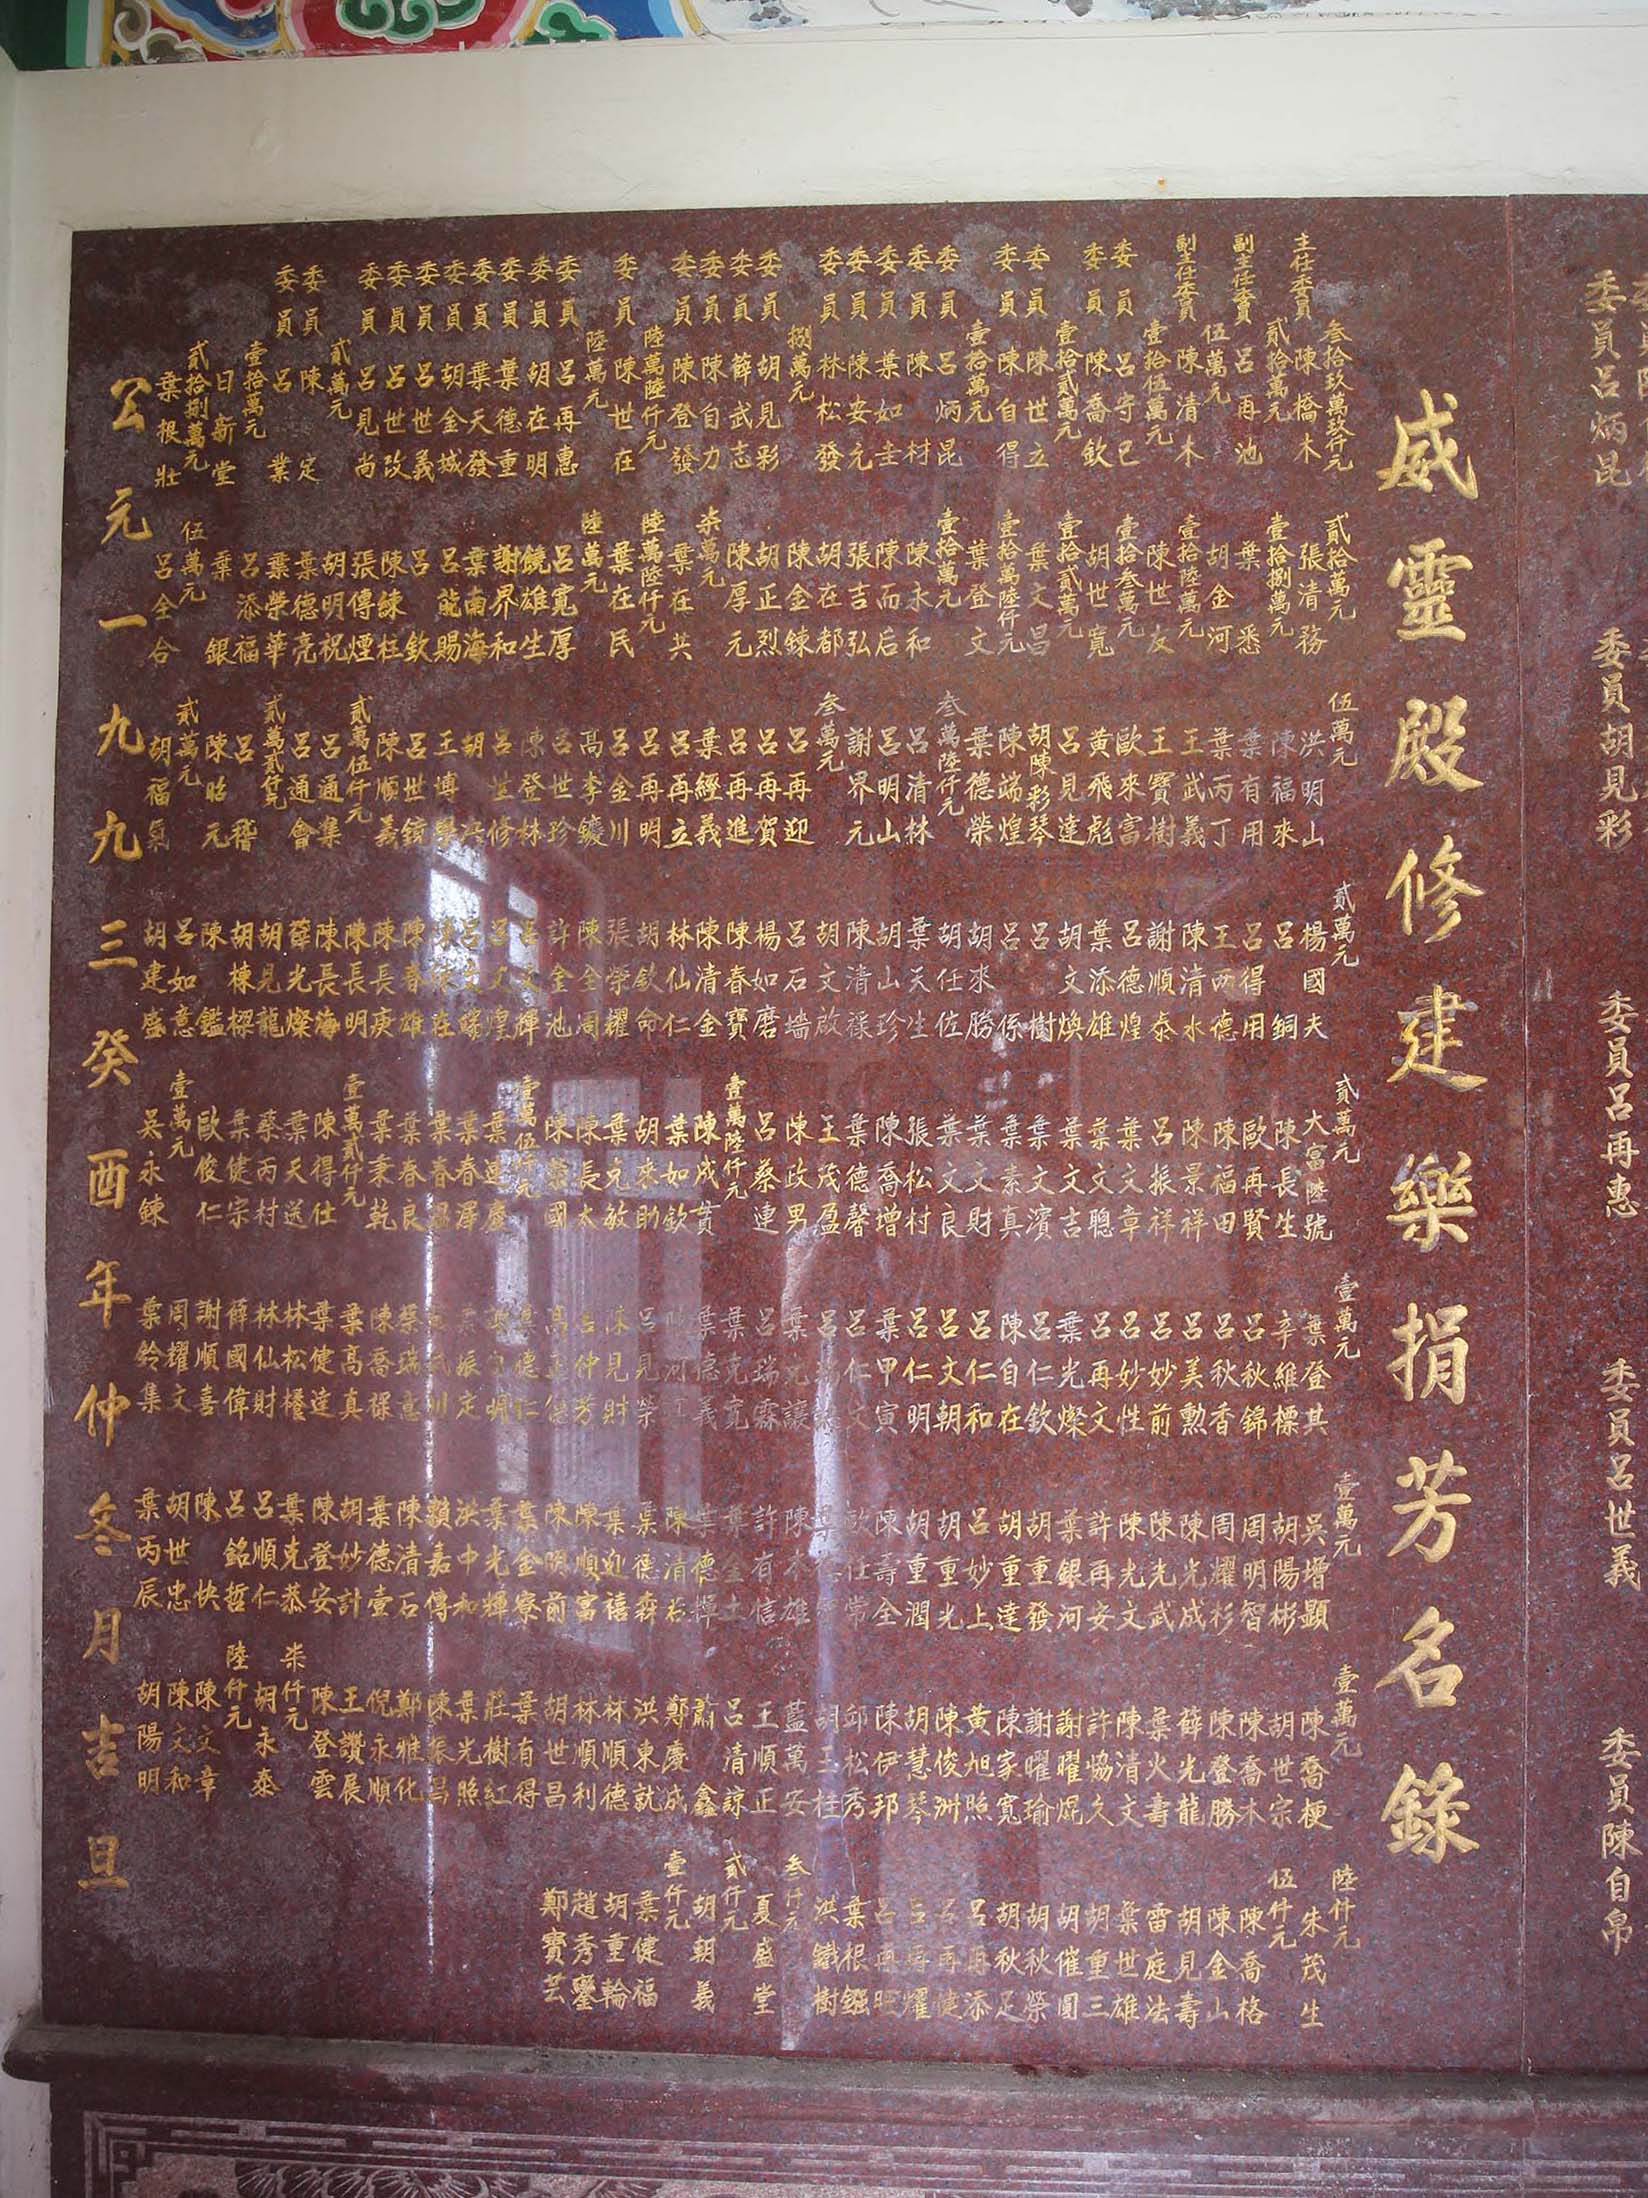 委員呂炳昆
委員胡見彩
委員呂再惠
委員呂世義
委員陳自帛
威靈殿修建樂捐芳名錄
叁拾玖萬玖仟元
主任委員 陳橋木
貳拾萬元
副主任委員 呂再池
伍萬元
副主任委員 陳清木
壹拾伍萬元
委員 呂守己
委員 陳喬欽
壹拾貳萬元
委員 陳世立
委員 陳自得
壹拾萬元
委員 呂炳昆
委員 陳村
委員 葉如圭
委員 陳安元
委員 林松發
捌萬元
委員 胡見彩
委員 薛武志
委員 陳自力
委員 陳登發
陸萬陸仟元
委員 陳世在
陸萬元
委員 呂再惠
委員 胡在明
委員 葉德重
委員 葉天發
委員 胡金城
委員 呂世義
委員 呂世改
委員 呂見尚
貳萬元
委員 陳定
委員 呂業
壹拾萬元
日新堂
貳拾捌萬元
葉根壯
貳拾萬元
張清務
壹拾捌萬元
葉悉
胡金河
壹拾陸萬元
陳世友
壹拾叁萬元
胡世寬
壹拾貳萬元
葉文昌
壹拾萬陸仟元
葉登文
壹拾萬元
陳永和
陳而后
張吉弘
胡在都
陳金鍊
胡正烈
陳厚元
柒萬元
葉在共
陸萬陸仟元
葉在民
陸萬元
呂寬厚
饒雄生
謝界和
葉南海
呂龍賜
呂欽
陳鍊柱
張傳煙
胡明祝
葉德亮
葉榮華
呂添福
葉銀
伍萬元
呂全合
伍萬元
洪明山
陳福來
葉有用
葉丙丁
王武義
王寶樹
歐來富
黃飛彪
呂見達
胡陳彩琴
陳端煌
葉德榮
叁萬陸仟元
呂清林
呂明山
謝界元
叁萬元
呂再迎
呂再賀
呂再進
葉經義
呂再立
呂再明
呂金川
高李鑲
呂世珍
陳登林
呂世修
王博學
呂世鏡
陳順義
貳萬伍仟元
呂通集
呂通會
貳萬貳仟元
呂稽
陳昭元
貳萬元
胡福氣
貳萬元
楊國夫
呂銅
呂得用
王兩德
陳清水
謝順泰
呂德煌
葉添雄
胡文煥
呂樹
呂係
胡來勝
胡任佐
葉天生
胡山珍
陳清祿
胡文啟
呂石墻
楊如磨
陳春寶
陳清金
林仙仁
胡欽命
張榮耀
陳全周
許金池
呂文輝
呂文煌
陳春雄
陳長庚
陳長明
陳長海
薛光燦
胡見龍
胡棟樑
陳欽鑑
呂如意
胡建盛
貳萬元
大富陸號
陳長生
歐再賢
陳福田
陳景祥
呂振祥
葉文章
葉文聰
葉文吉
葉文濱
葉素真
葉文財
葉文良
張松村
陳喬增
葉德馨
王茂盈
陳政男
呂蔡連
壹萬陸仟元
陳成貫
葉如欽
胡來助
葉克敏
陳長太
陳榮國
壹萬伍仟元
葉連慶
葉春澤
葉春溫
葉春良
葉秉乾
壹萬貳仟元
陳得仕
葉天送
蔡丙村
葉健宗
歐俊仁
壹萬元
吳永鍊
壹萬元
葉登其
辛維標
呂秋錦
呂秋香
呂美勳
呂妙前
呂妙性
呂再文
葉光燦
呂仁欽
陳自在
呂仁和
呂文朝
呂仁明
葉甲寅
呂仁文
葉允讓
呂瑞霖
葉克寬
葉德義
呂見榮
陳見財
呂仲芳
葉振定
蔡瑞意
陳喬祿
葉高真
葉健達
林松樁
林仙財
薛國偉
謝順喜
周耀文
葉鈴集
壹萬元
吳增顯
胡陽彬
周明智
周耀杉
陳光成
陳光武
陳光文
許再安
葉銀河
胡重發
胡重達
呂妙上
胡重光
胡重潤
陳壽全
歐仕常
陳本雄
許有信
葉金土
葉德輝
陳清右
葉德森
葉迎禧
陳順富
陳明前
葉金寮
葉光輝
洪中和
賴嘉傳
陳清石
葉德壹
胡妙計
陳登安
葉克恭
呂順仁
呂銘哲
陳快
胡世忠
葉丙辰
壹萬元
陳喬梗
胡世宗
陳喬木
陳登勝
薛光龍
葉火壽
陳清文
許協久
謝曜焜
謝曜瑜
陳家寬
黃旭照
陳俊洲
胡慧琴
陳伊邦
邱松秀
胡玉桂
藍萬安
王順正
呂清諒
蕭鑫
鄭慶成
洪東就
林順德
林順利
胡世昌
葉有得
莊樹紅
葉光照
陳振昌
鄭雅化
倪永順
王讚展
陳登雲
柒仟元
胡永泰
陸仟元
陳文章
陳文和
胡陽明
陸仟元
朱茂生
伍仟元
陳喬格
陳金山
胡見壽
雷庭法
葉世雄
胡重三
胡催圓
胡秋榮
胡秋足
呂再添
呂再健
呂再耀
呂再旺
葉根鏹
洪鐵樹
叁仟元
夏盛堂
貳仟元
胡朝義
壹仟元
葉健福
胡重輪
趙秀鑾
鄭寶芸
公元一九九三癸酉年仲冬月吉旦